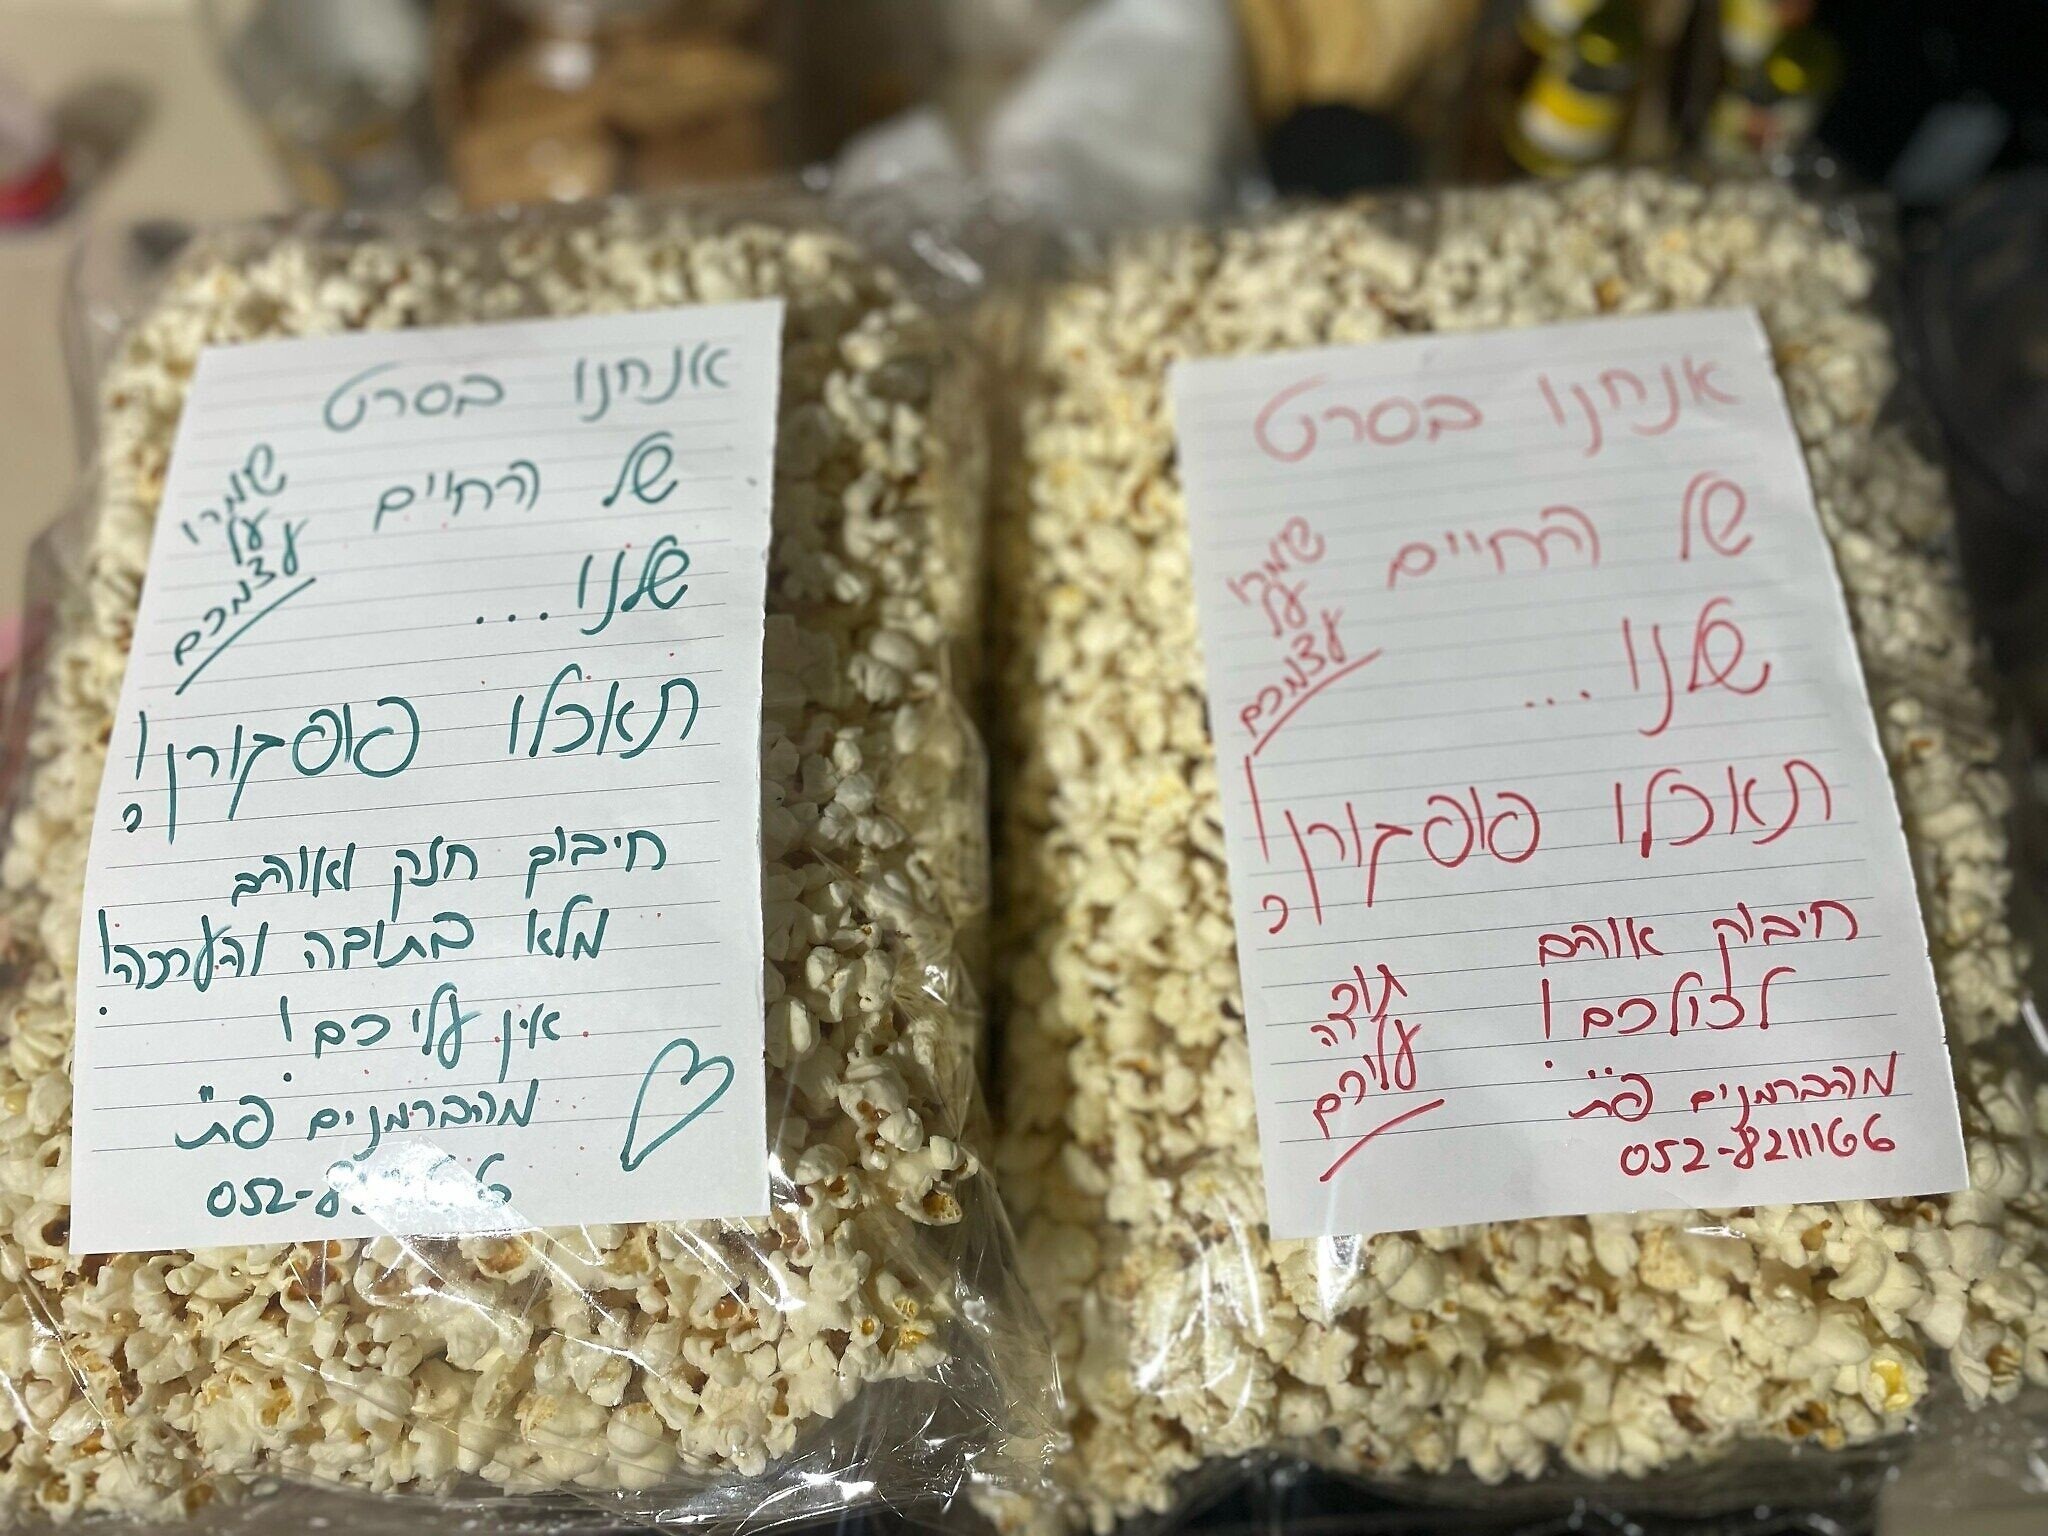 אנחנו בסרט
של החיים
שלנו...
שמרו
על
עצמכם
תאכלו פופקורן!
כי
חיבוק חזק ואוהב
מלא בתובה והערכה!
אין עליכם!
מהברמנים פ"ת
052-8
אנחנו בסרט
של החיים
שלנו...
שמרו
על
עצמכם
תאכלו פופקורן!
כי
חיבוק אוהב
לכולכם!
תודה
עליכם
מהברמנים פ"ת
052-8211166